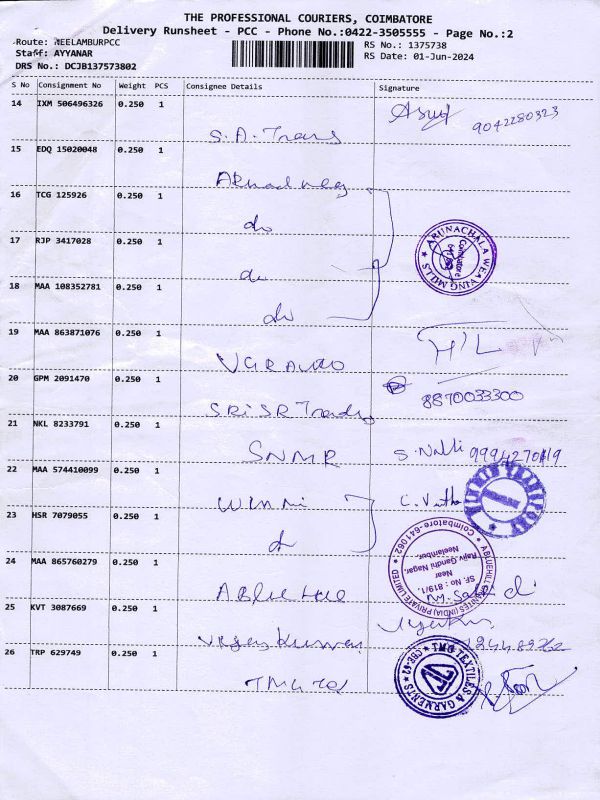 THE PROFESSIONAL COURIERS, COIMBATORE
Delivery Runsheet - PCC - Phone No.:0422-3505555 - Page No.:2
Route: NEELAMBURPCC
RS No.: 1375738
Staff: AYYANAR
RS Date: 01-Jun-2024
DRS No.: DCJB137573802
S No Consignment No Weight PCS Consignee Details Signature
14 IXM 506496326 0.250 1
9042280323
S.A. Trans
15 EDQ 15020048 0.250 1
16 TCG 125926 0.250 1
do
17 RJP 3417028 0.250 1
ARUNACHALA WEAVING MILLS
Coimbatore
do
18 MAA 108352781 0.250 1
do
19 MAA 863871076 0.250 1
H'L
20 GPM 2091470 0.250 1
8870033300
SRI SR Traders
21 NKL 8233791 0.250 1
SNMR
22 MAA 574410099 0.250 1
23 HSR 7079055 0.250 1
do
24 MAA 865760279 0.250 1
(INDIA) PRIVATE LIMITED
SF. No : 819/1,
Near
Rajiv Gandhi Nagar,
Neelambur,
Coimbatore-641062
25 KVT 3087669 0.250 1
26 TRP 629749 0.250 1
TMG TEXTILES & GARMENTS
CBE-62